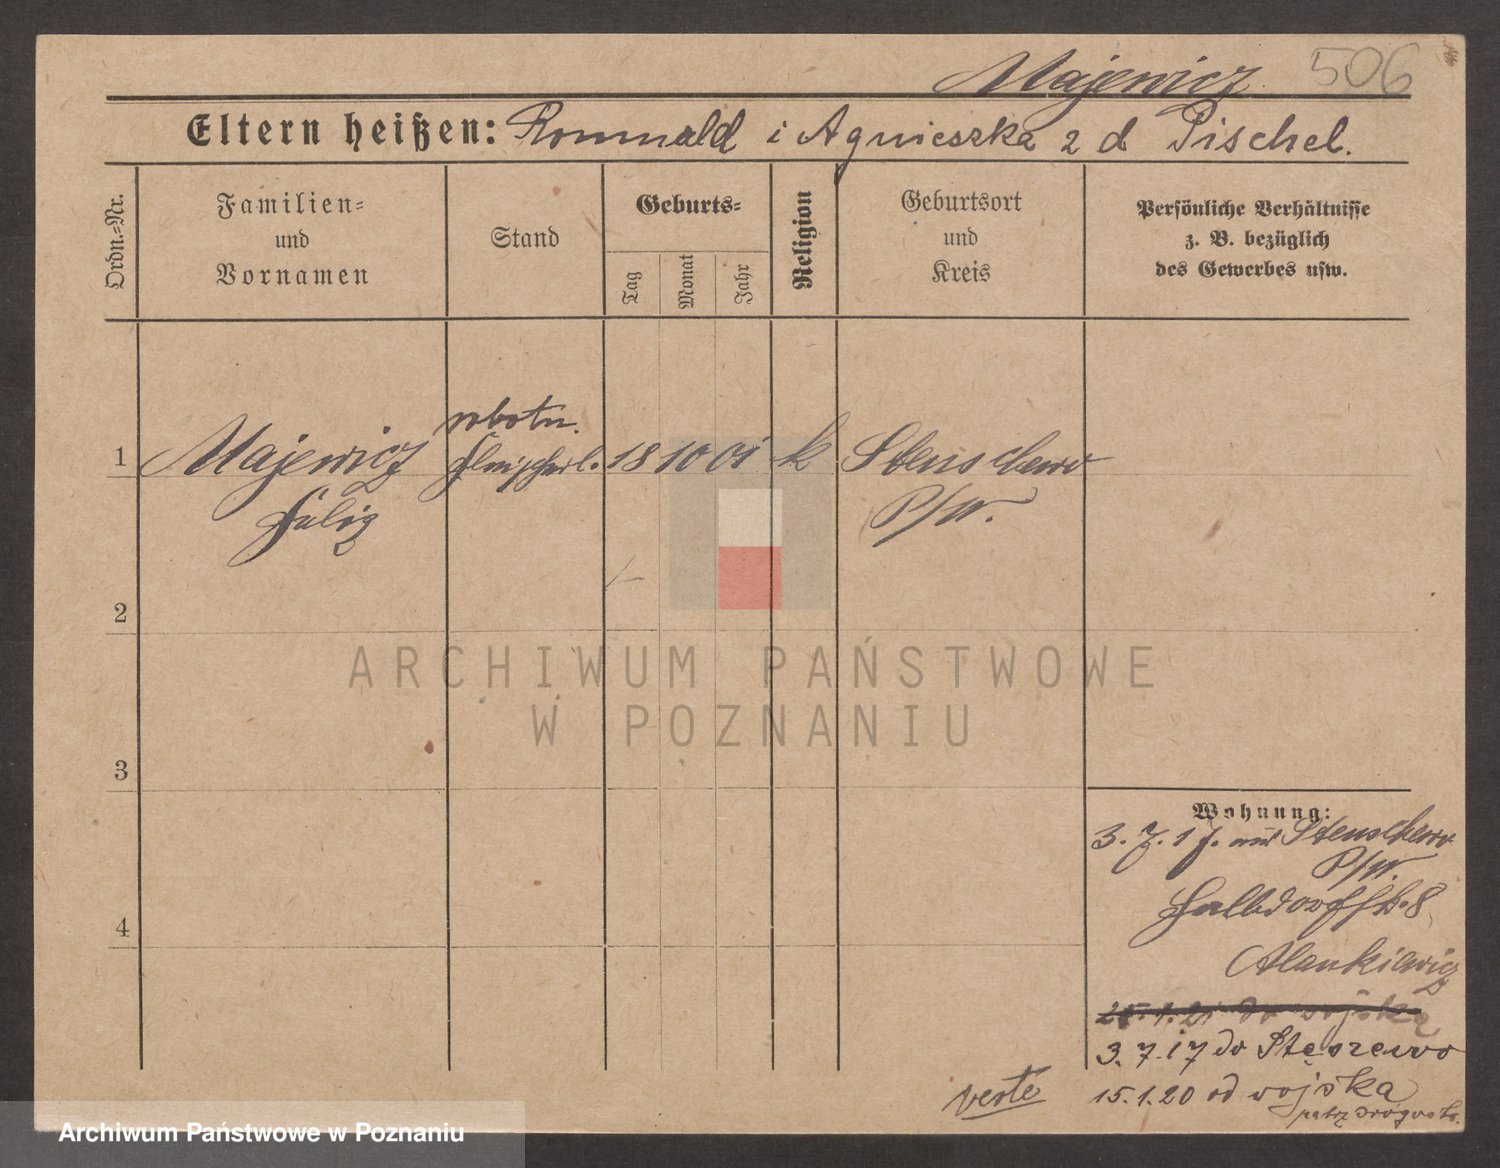 Majewicz 506
Eltern heißen: Romuald i Agnieszka z d Pischel.
Ordn.-Nr.
Familien-
und
Vornamen
Stand
Geburts-
Tag
Monat
Jahr
Religion
Geburtsort
und
Kreis
Persönliche Verhältnisse
z. B. bezüglich
des Gewerbes usw.
robotn.
1 Majewicz 18 10 01 k Stenschewo
P/W.
2
3
4
Wohnung:
3. 7. 17. aus Stenschewo
P/W.
Halbdorffstr. 8
15.1.21 do wojska
3. 7. 17 do Stęszewo
15.1.20 od wojska
verte
ARCHIWUM PAŃSTWOWE
W POZNANIU
Archiwum Państwowe w Poznaniu